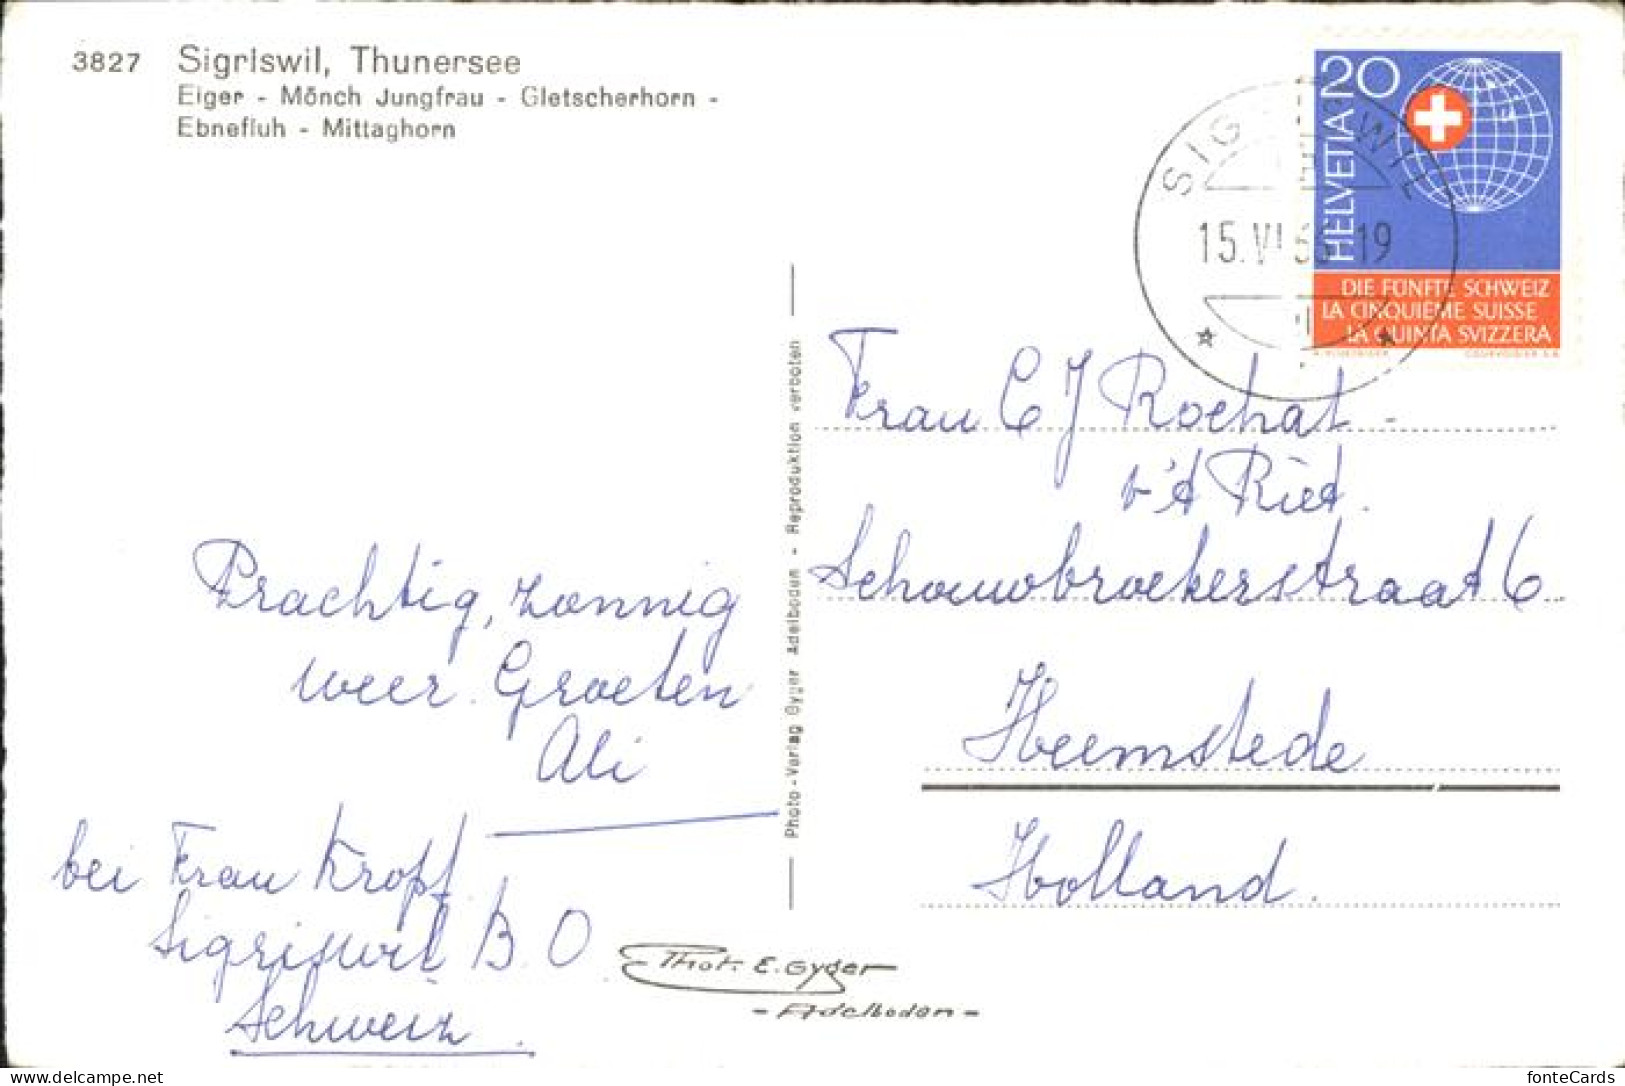 3827 Sigriswil, Thunersee
Eiger - Mönch Jungfrau - Gletscherhorn -
Ebnefluh - Mittaghorn
HELVETIA 20
DIE FÜNFTE SCHWEIZ
LA CINQUIÈME SUISSE
LA QUINTA SVIZZERA
COURVOISIER S.A.
15.VI 19
Frau C J Rochat -
v'd Ried.
Schouwbroekerstraat 6
Heemstede
Holland.
Prachtig, zonnig
weer. Groeten
Ali
bei Frau Kropf
Sigriswil B.O.
Schweiz.
Photo-Verlag Gyger Adelboden - Reproduktion verboten
Phot. E. Gyger
- Adelboden -
delcampe.net
fonteCards